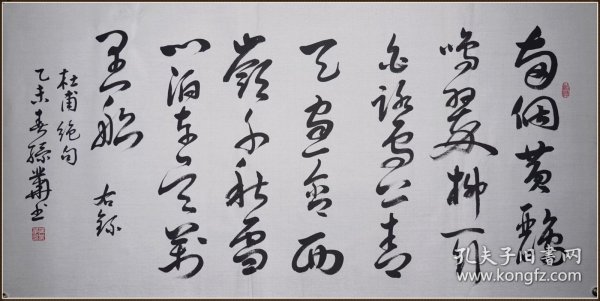 两個黄鸝
鸣翠柳一行
白鹭上青
天窗含西
嶺千秋雪
门泊东吴萬
里船 右錄
杜甫绝句
乙未春孫书
孔夫子旧书网
www.kongfz.com